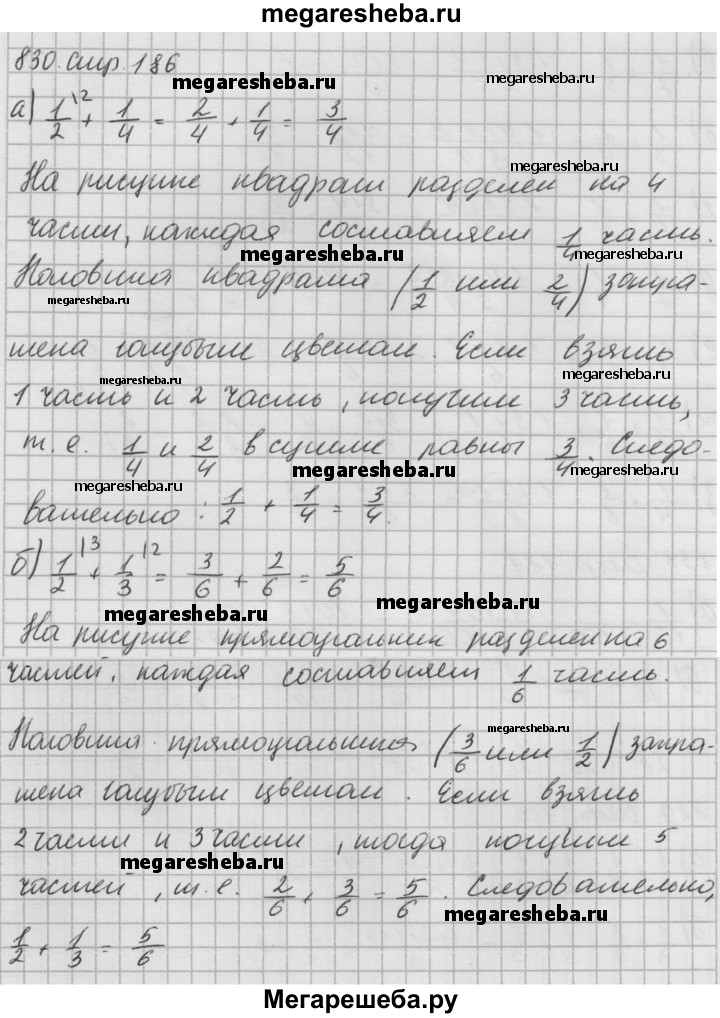 megaresheba.ru
830. стр. 186
megaresheba.ru
а) 1/2 |2 + 1/4 = 2/4 + 1/4 = 3/4
megaresheba.ru
На рисунке квадрат разделен на 4
части, каждая составляет 1/4 часть.
megaresheba.ru
megaresheba.ru
Половина квадрата (1/2 или 2/4) закра-
megaresheba.ru
шена голубым цветом. Если взять
megaresheba.ru
megaresheba.ru
1 часть и 2 часть, получим 3 часть,
т.е. 1/4 и 2/4 в сумме равны 3/4. Следо-
megaresheba.ru
megaresheba.ru
megaresheba.ru
вательно: 1/2 + 1/4 = 3/4.
б) 1/2 |3 + 1/3 |2 = 3/6 + 2/6 = 5/6
megaresheba.ru
megaresheba.ru
На рисунке прямоугольник разделен на 6
частей, каждая составляет 1/6 часть.
megaresheba.ru
Половина прямоугольника (3/6 или 1/2) закра-
шена голубым цветом. Если взять
2 части и 3 части, тогда получим 5
megaresheba.ru
частей, т.е. 2/6 + 3/6 = 5/6. Следовательно,
megaresheba.ru
1/2 + 1/3 = 5/6
Мегарешеба.ру